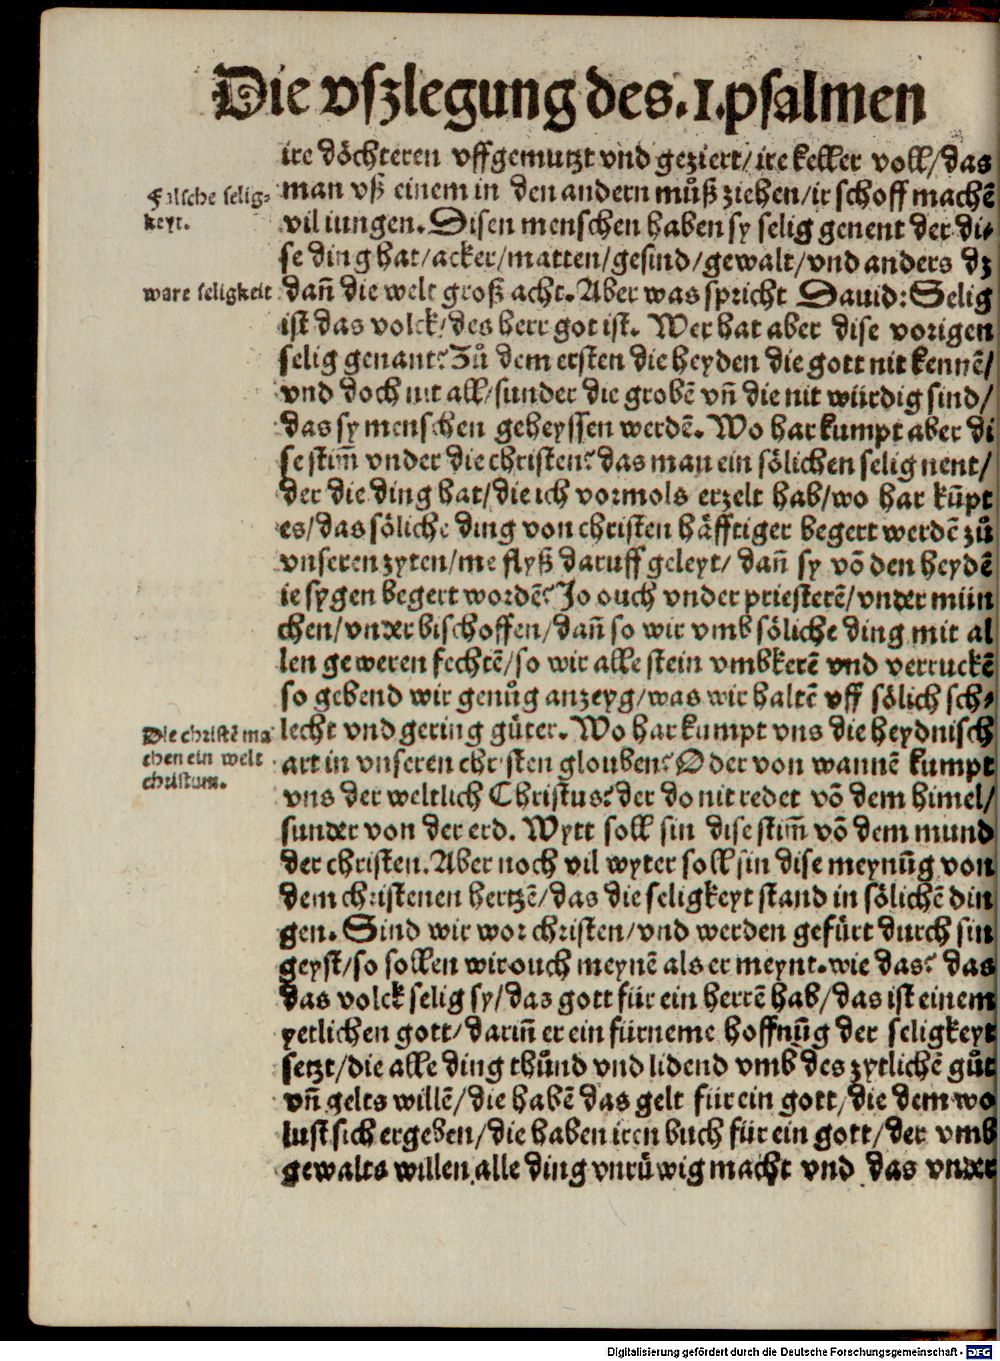 Die vſzlegung des.I.pſalmen
ire döchteren vffgemutzt vnd geziert/ire keller voll/das
man vß einem in den andern můß ziehen/ir schoff machē
Falsche selig-
keyt.
vil iungen. Disen menschen haben sy selig genent der di-
se ding hat/acker/matten/gesind/gewalt/vnd anders dz
ware seligkeit
dañ die welt groß acht. Aber was spricht Dauid: Selig
ist das volck/des herr got ist. Wer hat aber dise vorigen
selig genant? Zů dem ersten die heyden die gott nit kennē/
vnd doch nit all/sunder die grobē vñ die nit würdig sind/
das sy menschen geheyssen werdē. Wo har kumpt aber di
se stim̄ vnder die christen? das man ein sölichen selig nent/
der die ding hat/die ich vormols erzelt hab/wo har kūpt
es/das söliche ding von christen häfftiger begert werdē zů
vnseren zyten/me flyß daruff geleyt/ dañ sy vō den heydē
ie sygen begert wordē? Jo ouch vnder priesterē/vnder mün
chen/vnder bischoffen/dañ so wir vmb söliche ding mit al
len geweren fechtē/so wir alle stein vmbkerē vnd verruckē
so gebend wir genůg anzeyg/was wir haltē vff sölich sch-
lecht vnd gering güter. Wo har kumpt vns die heydnisch
Die christē ma
chen ein welt
christum.
art in vnseren christen glouben? Oder von wannē kumpt
vns der weltlich Christus? der do nit redet vō dem himel/
sunder von der erd. Wytt soll sin dise stim̄ vō dem mund
der christen. Aber noch vil wyter soll sin dise meynūg von
dem christenen hertzē/das die seligkeyt stand in sölichē din
gen. Sind wir wor christen/vnd werden gefürt durch sin
geyst/so sollen wir ouch meynē als er meynt. wie das? das
das volck selig sy/das gott für ein herrē hab/das ist einem
yetlichen gott/darin̄ er ein fürneme hoffnūg der seligkeyt
setzt/die alle ding thůnd vnd lidend vmb des zytlichē gůt
vñ gelts willē/die habē das gelt für ein gott/die dem wo
lust sich ergeben/die haben iren buch für ein gott/der vmb
gewalts willen alle ding vnrüwig macht vnd das vnder
Digitalisierung gefördert durch die Deutsche Forschungsgemeinschaft - DFG